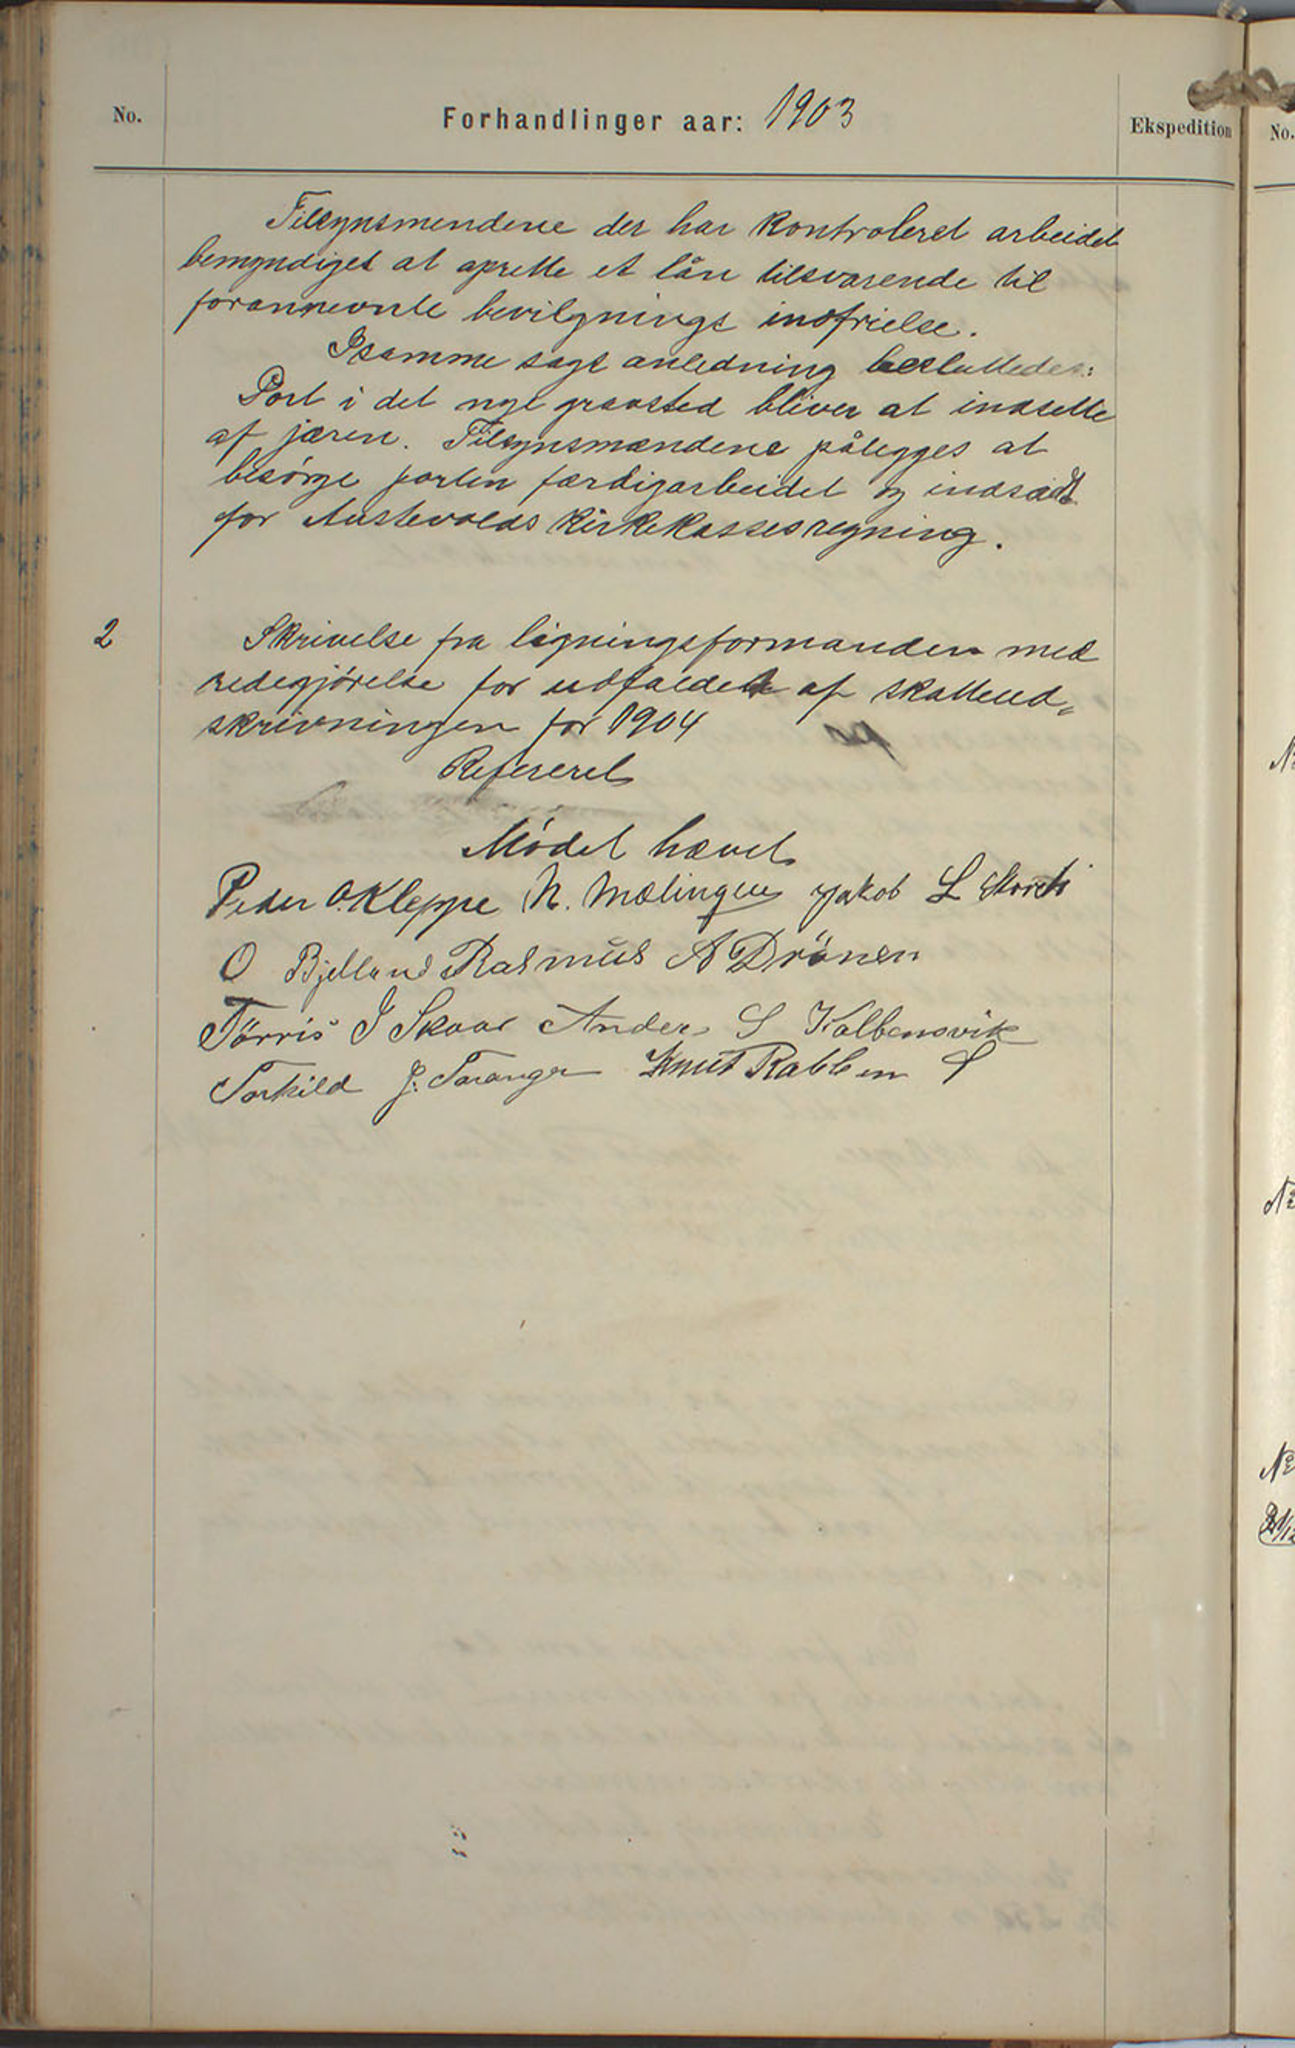 No.
Forhandlinger aar: 1903
Ekspedition
No.
Tilsynsmendene der har kontroleret arbeidet
bemyndiget at oprette et lån tilsvarende til
forannevnte bevilgnings indfrielse.
I samme sags anledning besluttedes:
Port i det nye gravsted bliver at indsette
af jærn. Tilsynsmændene pålegges at
besørge porten færdigarbeidet og indsadt
for Austevolds kirkekassesregning.
2
Skrivelse fra ligningsformanden med
redegjørelse for udfaldet af skatteud„
skrivningen for 1904
Refereret
Mødet hævet
Peder O. Kleppe N. Mælingen Jakob L
O Bjelland Rasmus A Drönen
Törris J Skaar Anders S Kolbensvik
Torkild J. Toranger Knut Rabben S